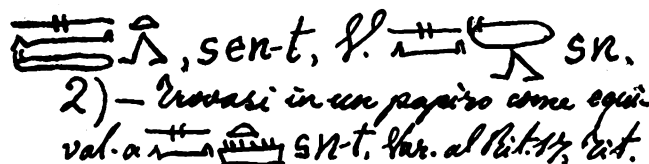 𓊃𓈖𓈙𓏏𓂻, sen-t, V. 𓊃𓈖𓍷𓂻 sn.
2) — Trovasi in un papiro come equi-
val. a 𓊃𓈖𓏏𓏠 sn-t. Var. al Rit. 17, Rit.